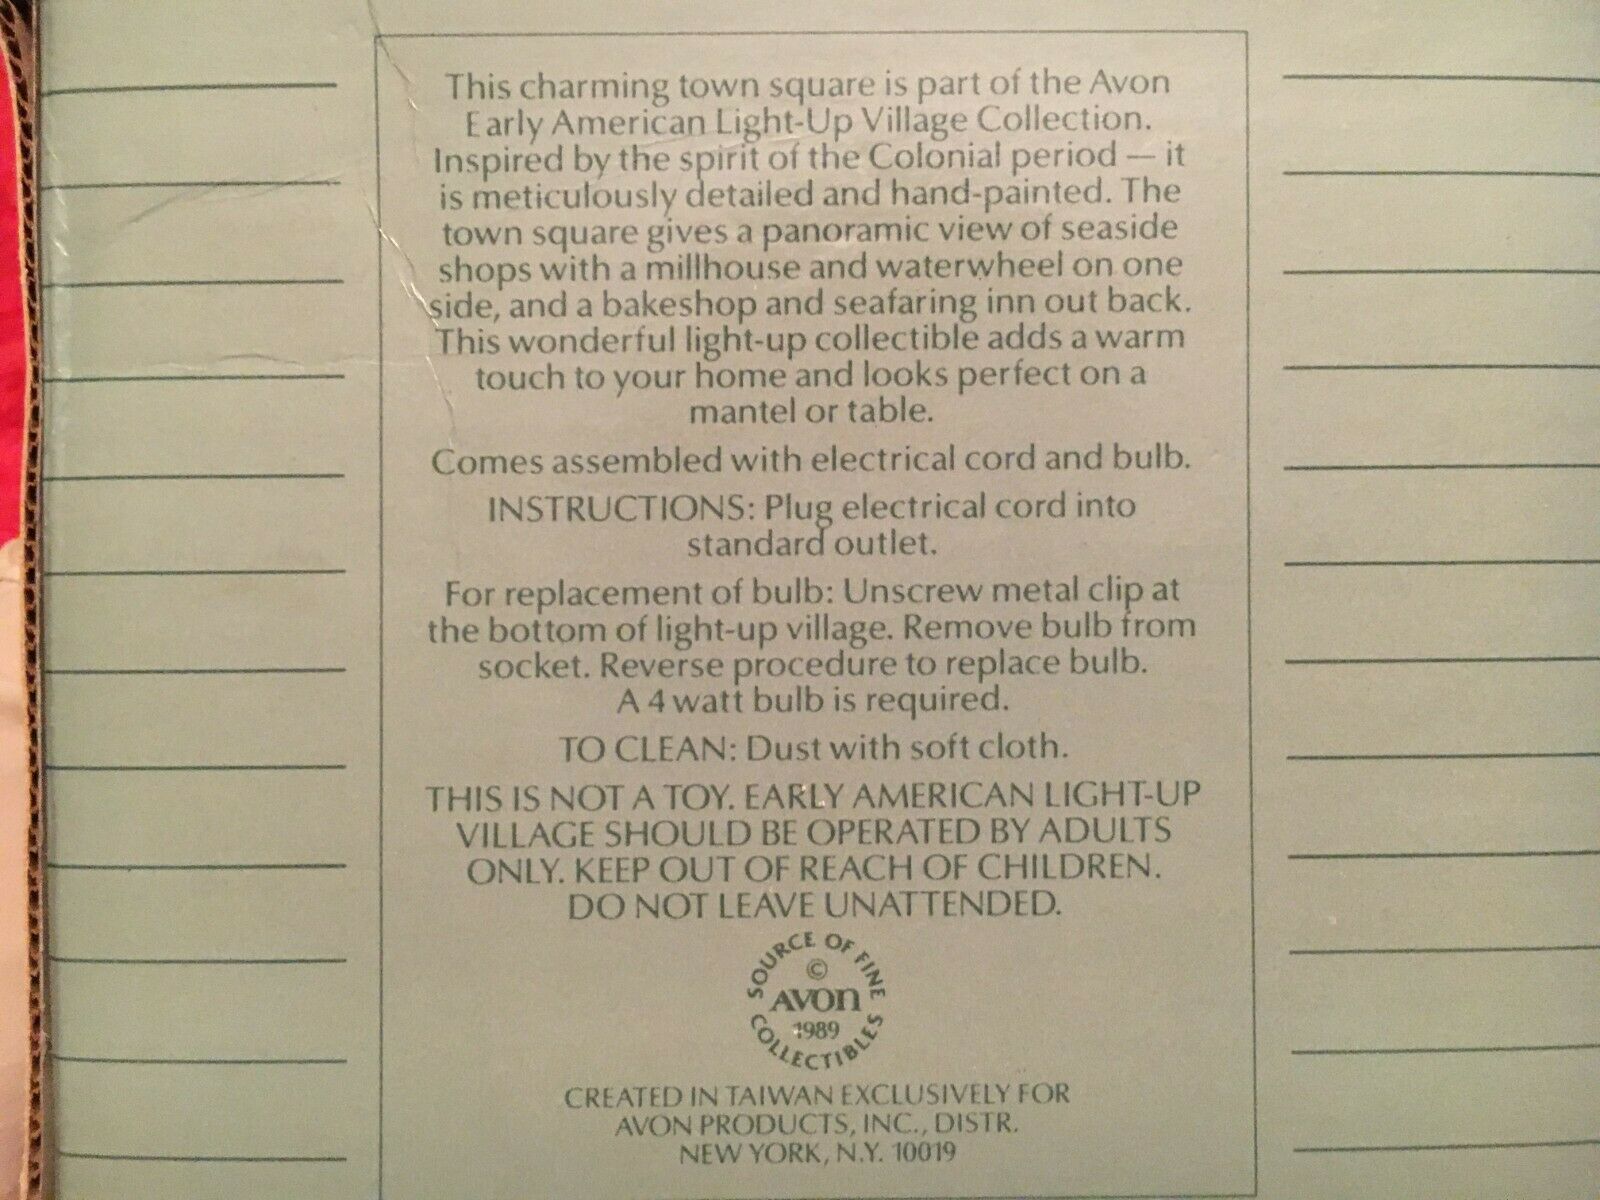 This charming town square is part of the Avon
Early American Light-Up Village Collection.
Inspired by the spirit of the Colonial period — it
is meticulously detailed and hand-painted. The
town square gives a panoramic view of seaside
shops with a millhouse and waterwheel on one
side, and a bakeshop and seafaring inn out back.
This wonderful light-up collectible adds a warm
touch to your home and looks perfect on a
mantel or table.
Comes assembled with electrical cord and bulb.
INSTRUCTIONS: Plug electrical cord into
standard outlet.
For replacement of bulb: Unscrew metal clip at
the bottom of light-up village. Remove bulb from
socket. Reverse procedure to replace bulb.
A 4 watt bulb is required.
TO CLEAN: Dust with soft cloth.
THIS IS NOT A TOY. EARLY AMERICAN LIGHT-UP
VILLAGE SHOULD BE OPERATED BY ADULTS
ONLY. KEEP OUT OF REACH OF CHILDREN.
DO NOT LEAVE UNATTENDED.
SOURCE OF FINE
©
AVON
1989
COLLECTIBLES
CREATED IN TAIWAN EXCLUSIVELY FOR
AVON PRODUCTS, INC., DISTR.
NEW YORK, N.Y. 10019